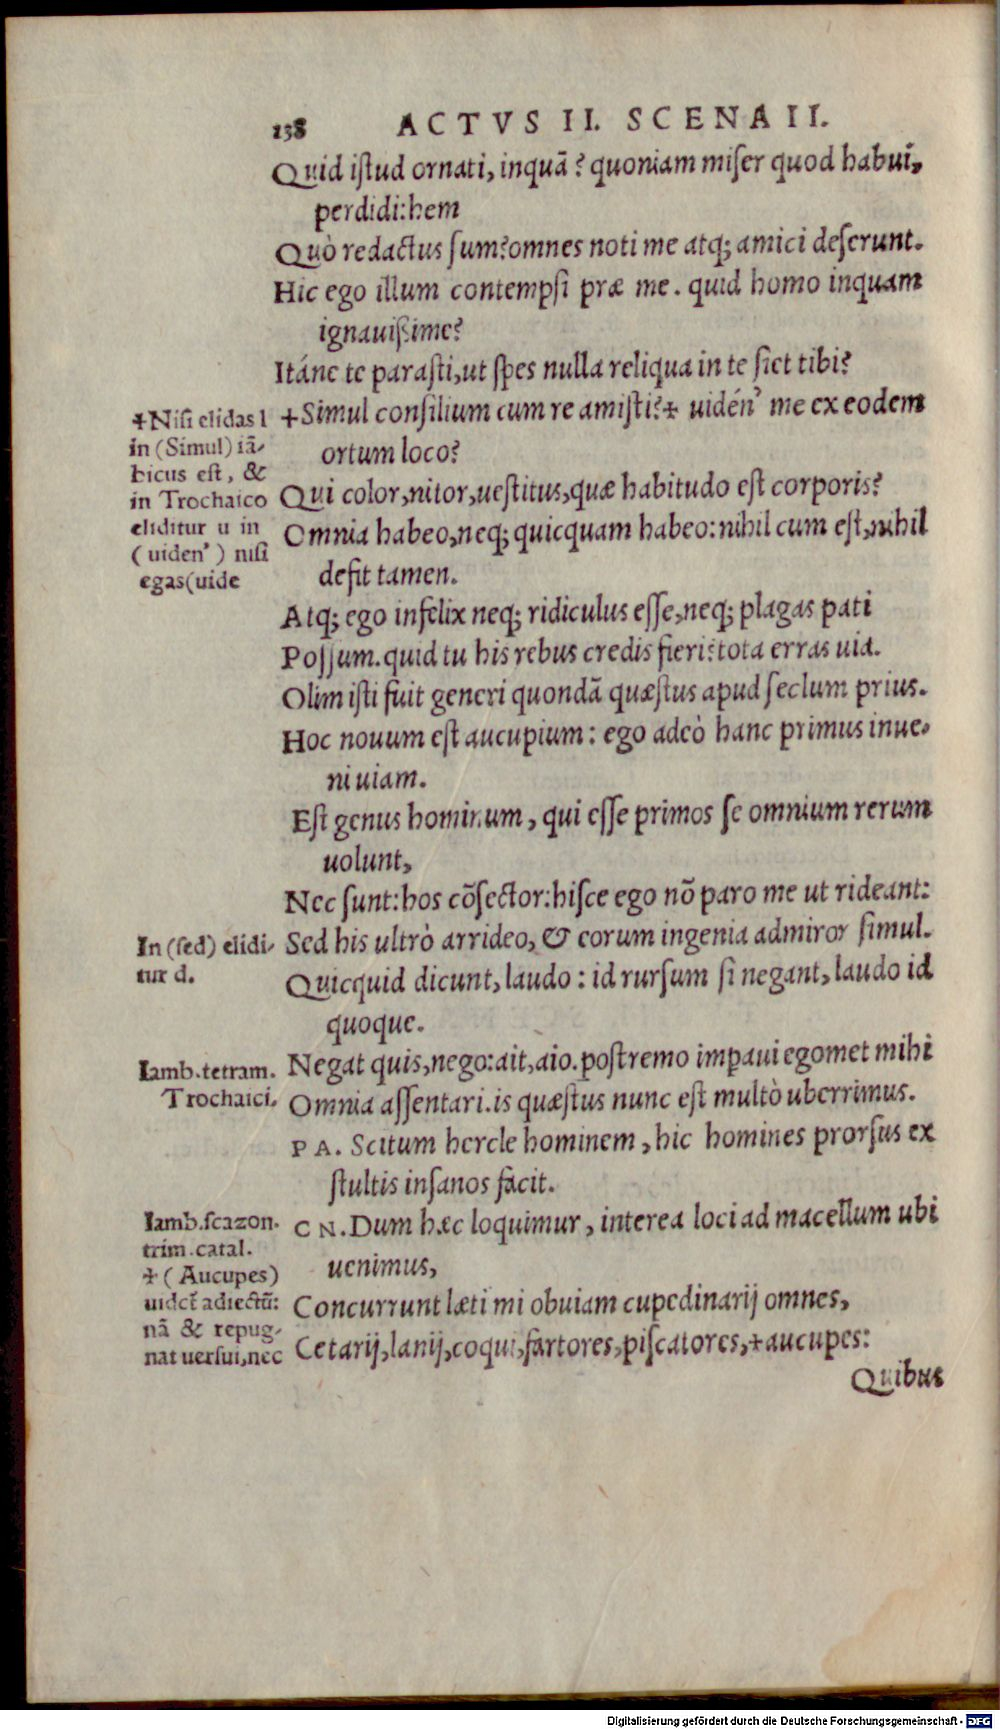 138 ACTVS II. SCENA II.
Quid istud ornati, inquā? quoniam miser quod habui,
perdidi: hem
Quò redactus sum? omnes noti me atq; amici deserunt.
Hic ego illum contempsi præ me. quid homo inquam
ignauissime?
Itáne te parasti, ut spes nulla reliqua in te siet tibi?
+Simul consilium cum re amisti?+ uidén' me ex eodem
ortum loco?
Qui color, nitor, uestitus, quæ habitudo est corporis?
Omnia habeo, neq; quicquam habeo: nihil cum est, nihil
defit tamen.
Atq; ego infelix neq; ridiculus esse, neq; plagas pati
Possum. quid tu his rebus credis fieri? tota erras uia.
Olim isti fuit generi quondā quæstus apud seclum prius.
Hoc nouum est aucupium: ego adeò hanc primus inue-
ni uiam.
Est genus hominum, qui esse primos se omnium rerum
uolunt,
Nec sunt: hos cōsector: hisce ego nō paro me ut rideant:
Sed his ultrò arrideo, & eorum ingenia admiror simul.
Quicquid dicunt, laudo: id rursum si negant, laudo id
quoque.
Negat quis, nego: ait, aio. postremo imperaui egomet mihi
Omnia assentari. is quæstus nunc est multò uberrimus.
PA. Scitum hercle hominem, hic homines prorsus ex
stultis insanos facit.
CN. Dum hæc loquimur, interea loci ad macellum ubi
uenimus,
Concurrunt læti mi obuiam cupedinarij omnes,
Cetarij, lanij, coqui, fartores, piscatores, +aucupes:
Quibus
+Nisi elidas l
in (Simul) iā-
bicus est, &
in Trochaico
eliditur u in
(uiden') nisi
egas(uide
In (sed) elidi-
tur d.
Iamb. tetram.
Trochaici.
Iamb. scazon.
trim. catal.
+(Aucupes)
uidet̃ adiectū:
nā & repug-
nat uersui, nec
Digitalisierung gefördert durch die Deutsche Forschungsgemeinschaft - DFG